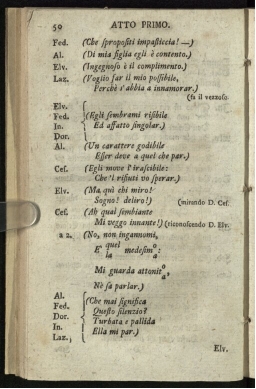 50 ATTO PRIMO.
Fed. (Che spropositi impasticcia! —)
Al. (Di mia figlia egli è contento.)
Elv. (Ingegnoso è il complimento.)
Laz. (Voglio far il mio possibile,
Perchè s'abbia a innamorar.)
(fa il vezzoso
Elv.
Fed. (Egli sembrami risibile
In. Ed affatto singolar.)
Dor.
Al. (Un carattere godibile
Esser deve a quel che par.)
Ces. (Egli move l'irascibile:
Che 'l rifiuti vo sperar.)
Elv. (Ma quì chi miro!
Sogno! deliro!) (mirando D. Ces.
Ces. (Ah qual sembiante
Mi veggo innante!) (riconoscendo D. Elv.
a 2. (No, non ingannomi,
E' quel medesimo:
la a
Mi guarda attonito,
a
Nè sa parlar.)
Al.
Fed. (Che mai significa
Dor. Questo silenzio?
In. Turbata e pallida
Laz. Ella mi par.)
Elv.